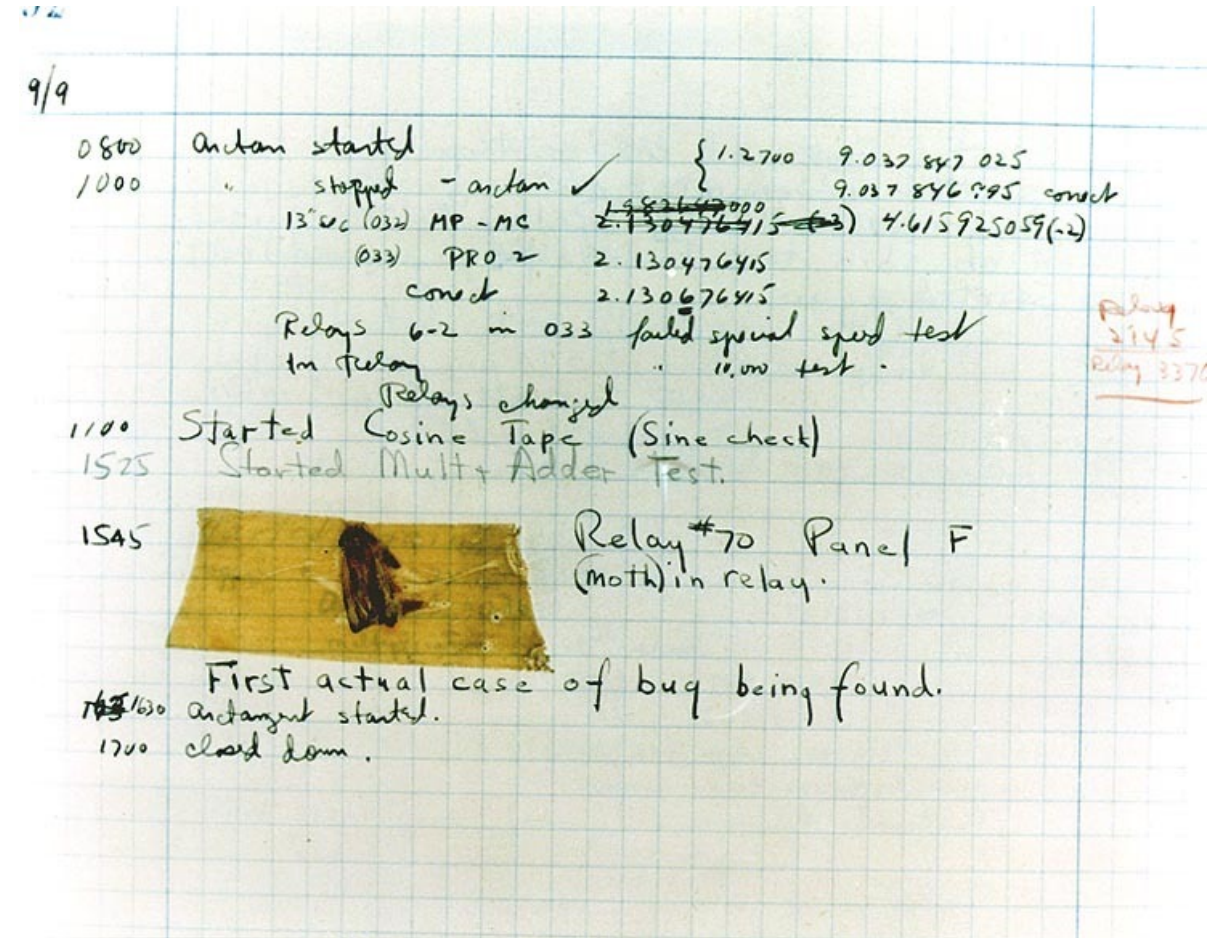 9/9
0800 arctan started { 1.2700 9.037 847 025
1000 " stopped - arctan ✓ 9.037 846 995 correct
13" sec (032) MP - MC 2.130476415 (-3) 4.615925059(-2)
(033) PRO 2 2.130476415
correct 2.130676415
Relays 6-2 in 033 failed special speed test
In Relay " 10,000 test .
Relays changed
Relay
2145
Relay 3370
1100 Started Cosine Tape (Sine check)
1525 Started Mult + Adder Test.
1545 Relay #70 Panel F
(moth) in relay.
First actual case of bug being found.
1630 arctangent started.
1700 closed down .